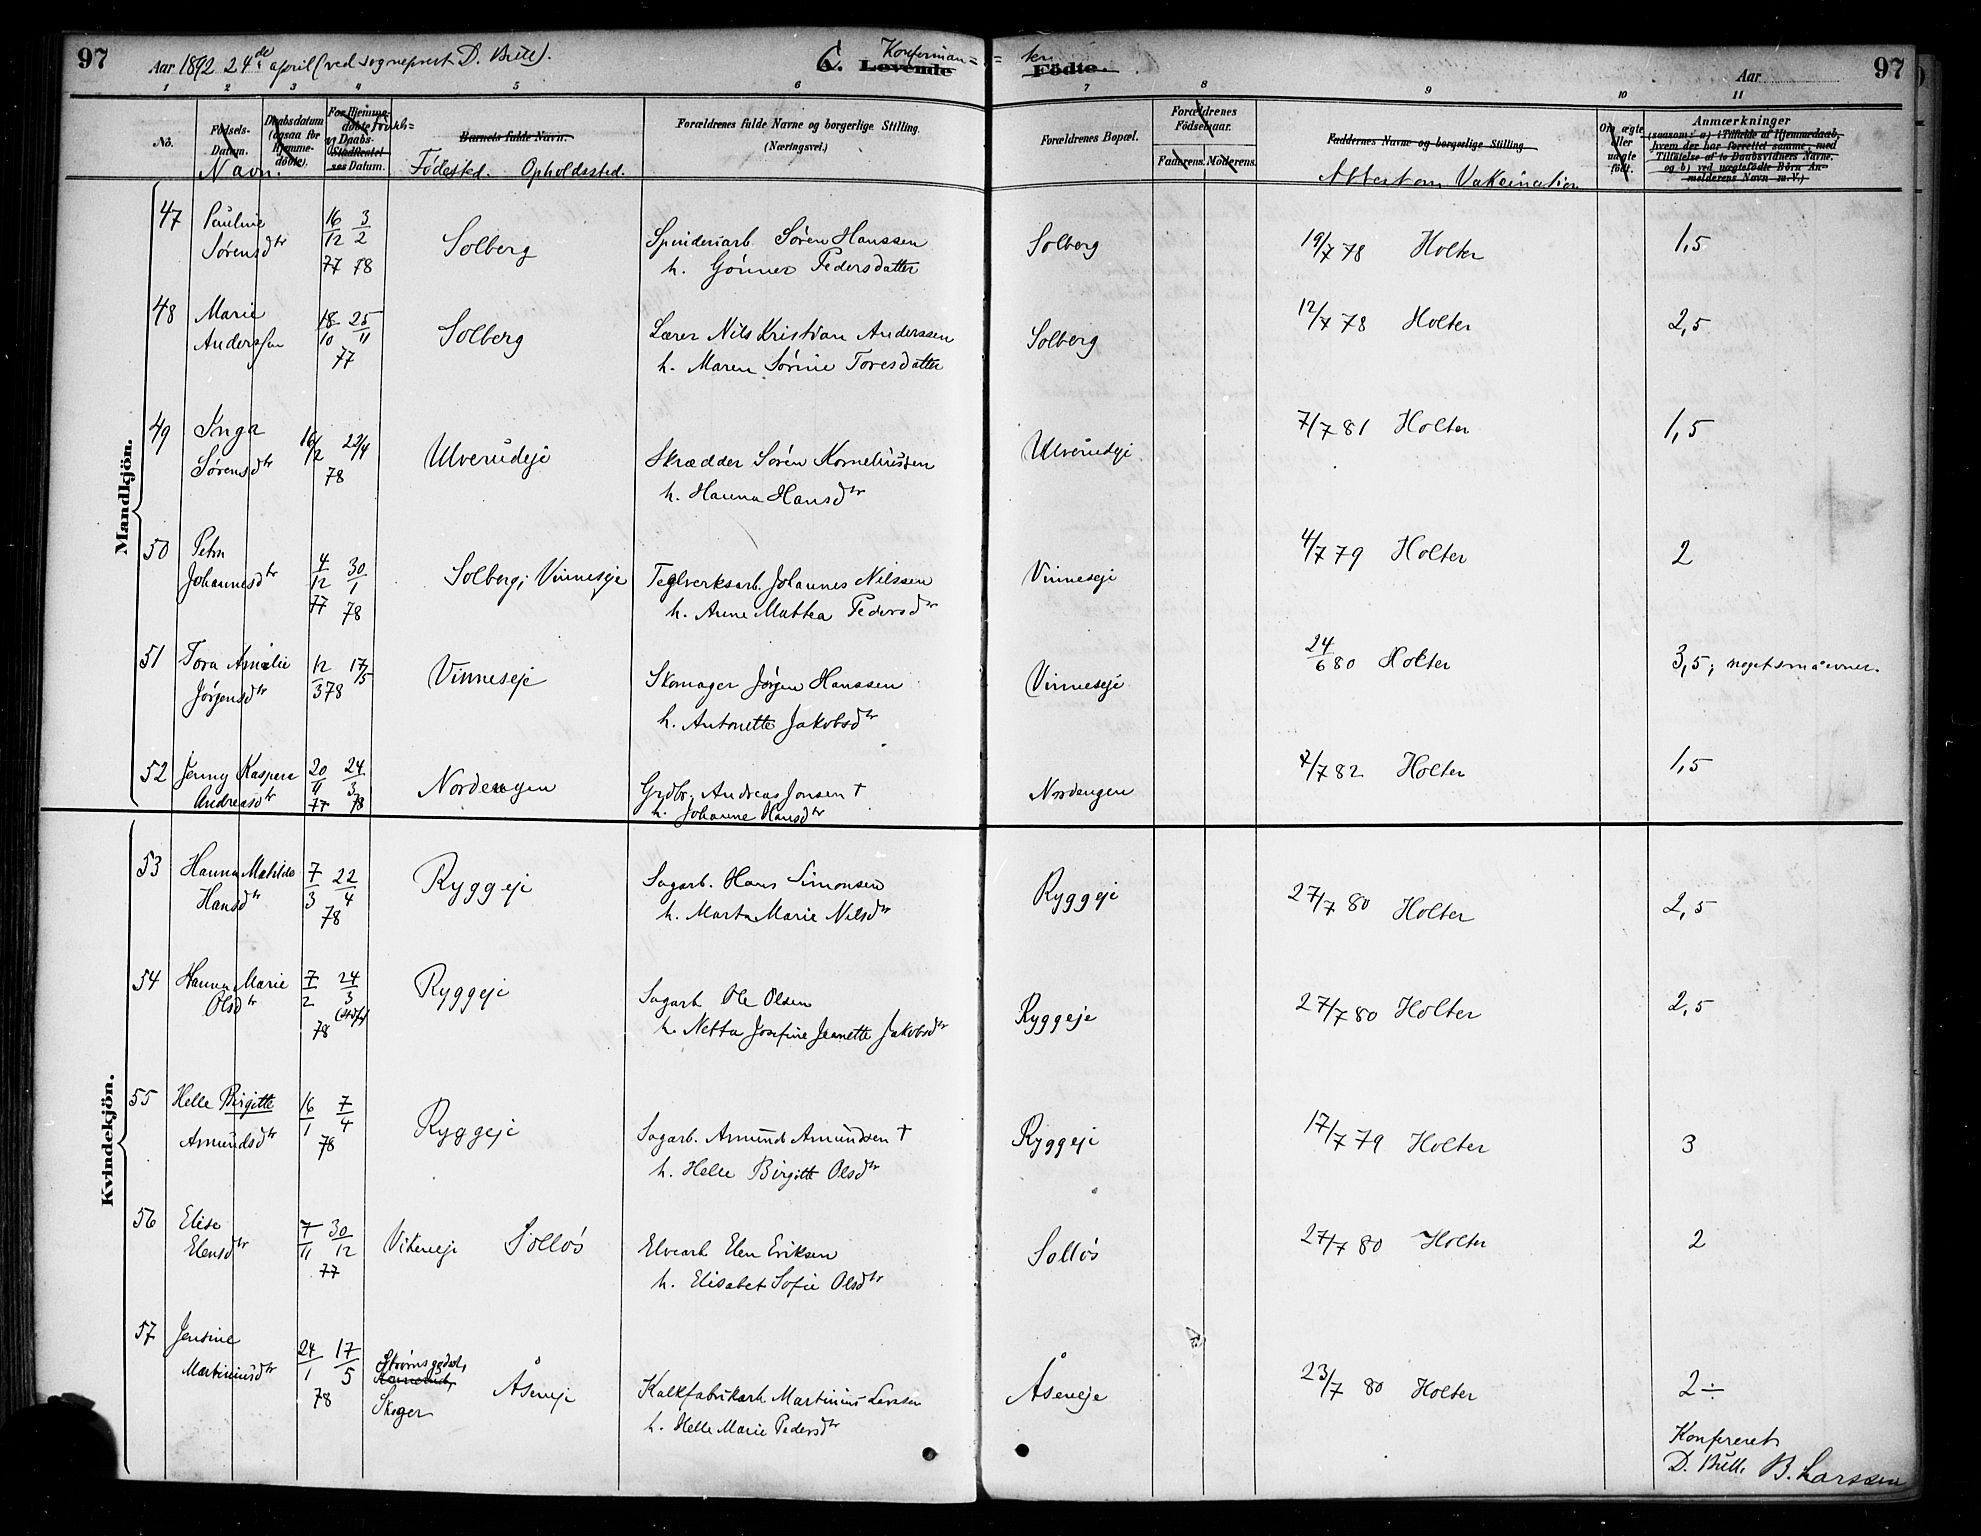 97
Aar 1892 24de april (ved sogneprest D. Bull).
C. Levende Konfirman=
=ter Födte.
Aar
97
1 2 3 4 5 6 7 8 9 10 11
No.
Födsels-Datum.
Navn.
Daabsdatum (ogsaa for Hjemme-døbte).
For Hjemme-døbte
Daabs-Stadfæstel-ses Datum.
Barnets fulde Navn.
Födested. Opholdssted.
Forældrenes fulde Navne og borgerlige Stilling.
(Næringsvei.)
Forældrenes Bopæl.
Forældrenes Födselsaar.
Faderens. Moderens.
Faddernes Navne og borgerlige Stilling
Attest om Vakcination
Om ægte eller uægte født.
Anmærkninger
(saasom: a) i Tilfælde af Hjemmedaab,
hvem der har forrettet samme, med
Tilføielse af to Daabsvidners Navne,
og b) ved uægtefødte Börn An-
melderens Navn m.V.)
Mandkjön.
47 Pauline Sørensdtr 16/12 77 3/2 78 Solberg Spinderiarb. Søren Hanssen
h. Gunner Pedersdatter Solberg 19/7 78 Holter 1,5
48 Marie Anderssen 18/10 25/11 77 Solberg Lærer Nils Kristian Anderssen
h. Maren Sørine Toresdatter Solberg 12/7 78 Holter 2,5
49 Inga Sørensdtr 16/2 22/4 78 Ulverudeje Skrædder Søren Korneliussen
h. Hanna Hansdtr Ulverudeje 7/7 81 Holter 1,5
50 Petra Johannesdtr 4/12 77 30/1 78 Solberg; Vinneseje Teglverksarb. Johannes Nilssen
h. Anne Mattea Pedersdtr Vinneseje 4/7 79 Holter 2
51 Tora Amalie Jørgensdtr 12/3 78 17/5 Vinneseje Skomager Jørgen Hanssen
h. Antonette Jakobsdtr Vinneseje 24/6 80 Holter 3,5; noget små evner.
52 Jenny Kaspera Andreasdtr 20/11 77 24/3 78 Nordengen Grdbr. Andreas Jonsen †
h. Johanne Hansdtr Nordengen 7/7 82 Holter 1,5
Kvindekjön.
53 Hanna Matilde Hansdtr 7/3 22/4 78 Ryggeje Sagarb. Hans Simonsen
h. Marta Marie Nilsdtr Ryggeje 27/7 80 Holter 2,5
54 Hanna Marie Olsdtr 7/2 24/3 78 Ryggeje Sagarb Ole Olsen
h. Netta Josefine Jeanette Jakobsdtr Ryggeje 27/7 80 Holter 2,5
55 Helle Birgitte Amundsdtr 16/1 7/4 78 Ryggeje Sagarb. Amund Amundsen †
h. Helle Birgitte Olsdtr Ryggeje 17/7 79 Holter 3
56 Elise Elensdtr 7/11 30/12 77 Vikeneje Solløs Elvearb Elen Eriksen
h. Elisabet Sofie Olsdtr Solløs 27/7 80 Holter 2
57 Jensine Martiniusdtr 24/1 17/5 78 Strømsgodset, Skoger Åseneje Kalkfabrikarb Martinius Larssen
h. Helle Marie Pedersdtr Åseneje 23/7 80 Holter 2 ÷
Konfereret
D. Bull. B. Larssen